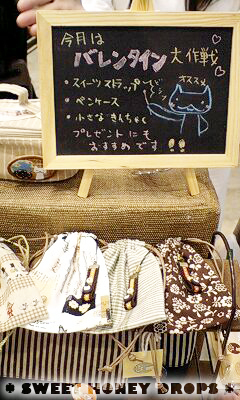 今月は
バレンタイン大作戦
• スイーツストラップ
オススメ
• ペンケース
• 小さな きんちゃく
プレゼントにも
おすすめです!!
* SWEET HONEY DROPS *